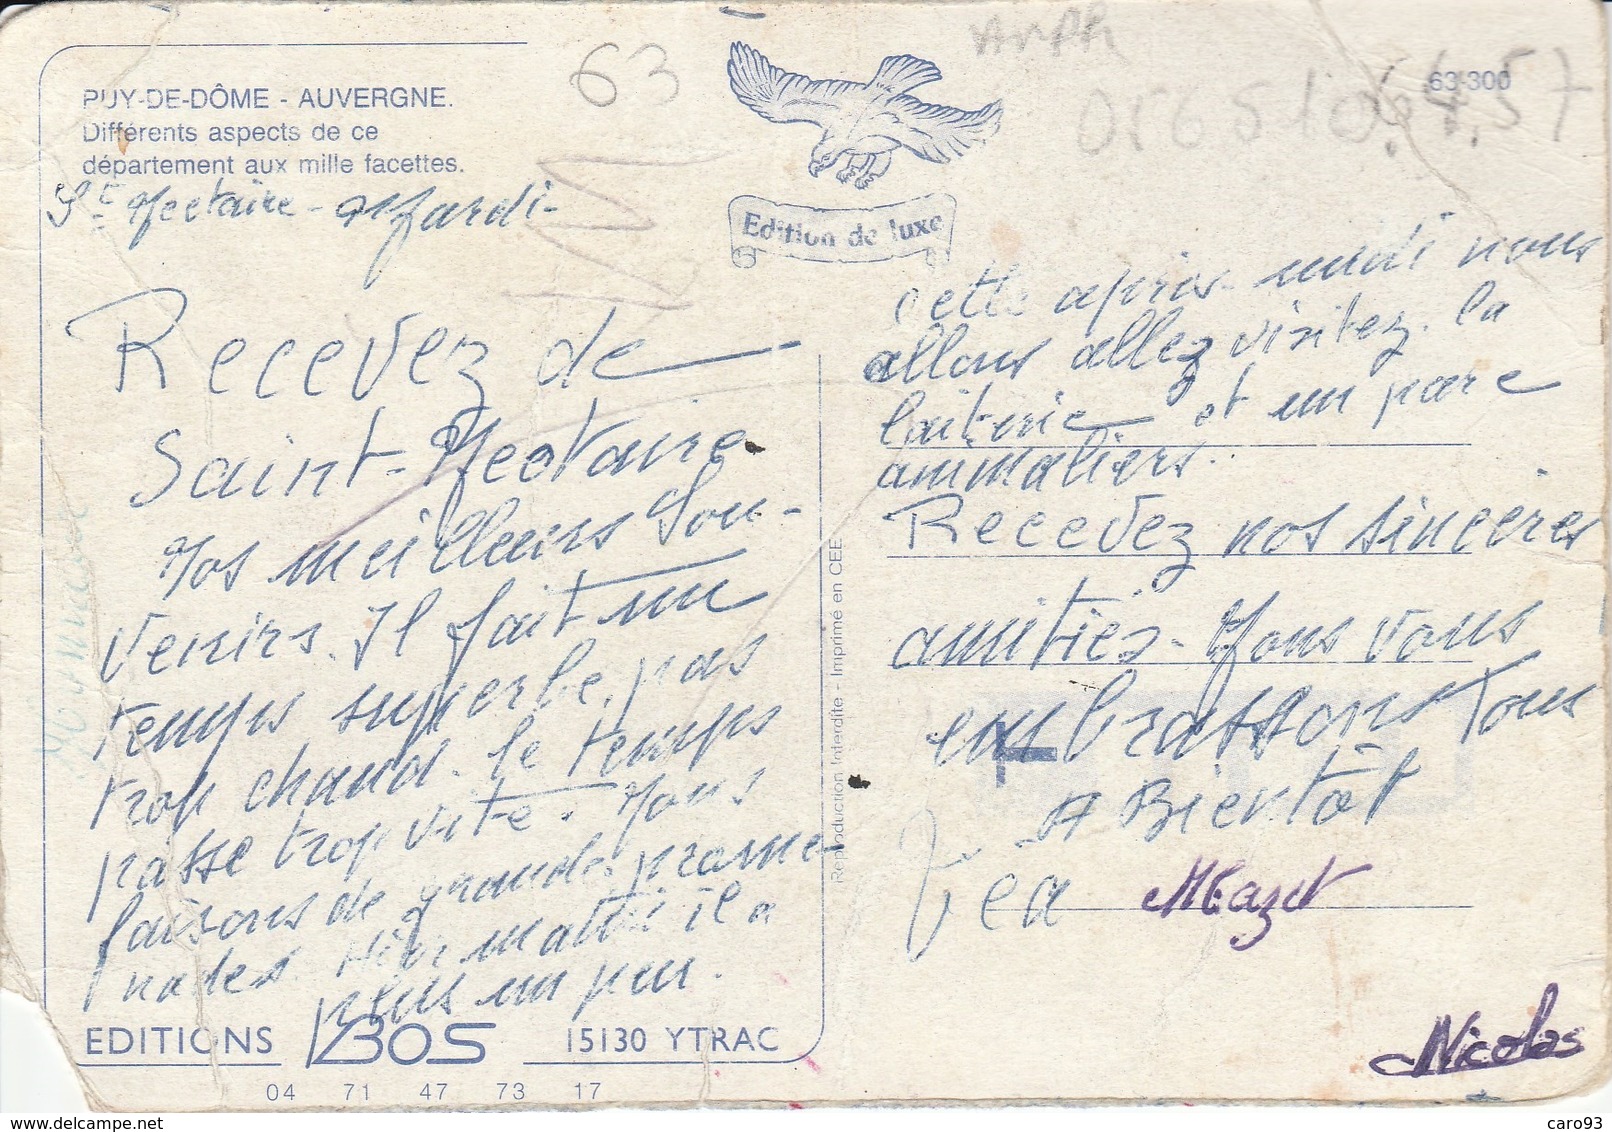 PUY-DE-DÔME - AUVERGNE.
Différents aspects de ce
département aux mille facettes.
63
63-300
Edition de luxe
St Nectaire - Mardi -
Recevez de
Saint-Nectaire
Nos meilleurs Sou-
venirs. Il fait un
temps superbe, pas
trop chaud. le temps
passe trop vite. Nous
faisons de grandes prome-
nades. Hier matin il a
plus un peu.
cette après-midi nous
allons allez visitez. la
laiterie et un parc
animaliers.
Recevez nos sincères
amitiés - Nous vous
embrassons Tous
A Bientôt
Lea
Nicolas
Reproduction Interdite - Imprimé en CEE
EDITIONS BOS 15130 YTRAC
04 71 47 73 17
caro93